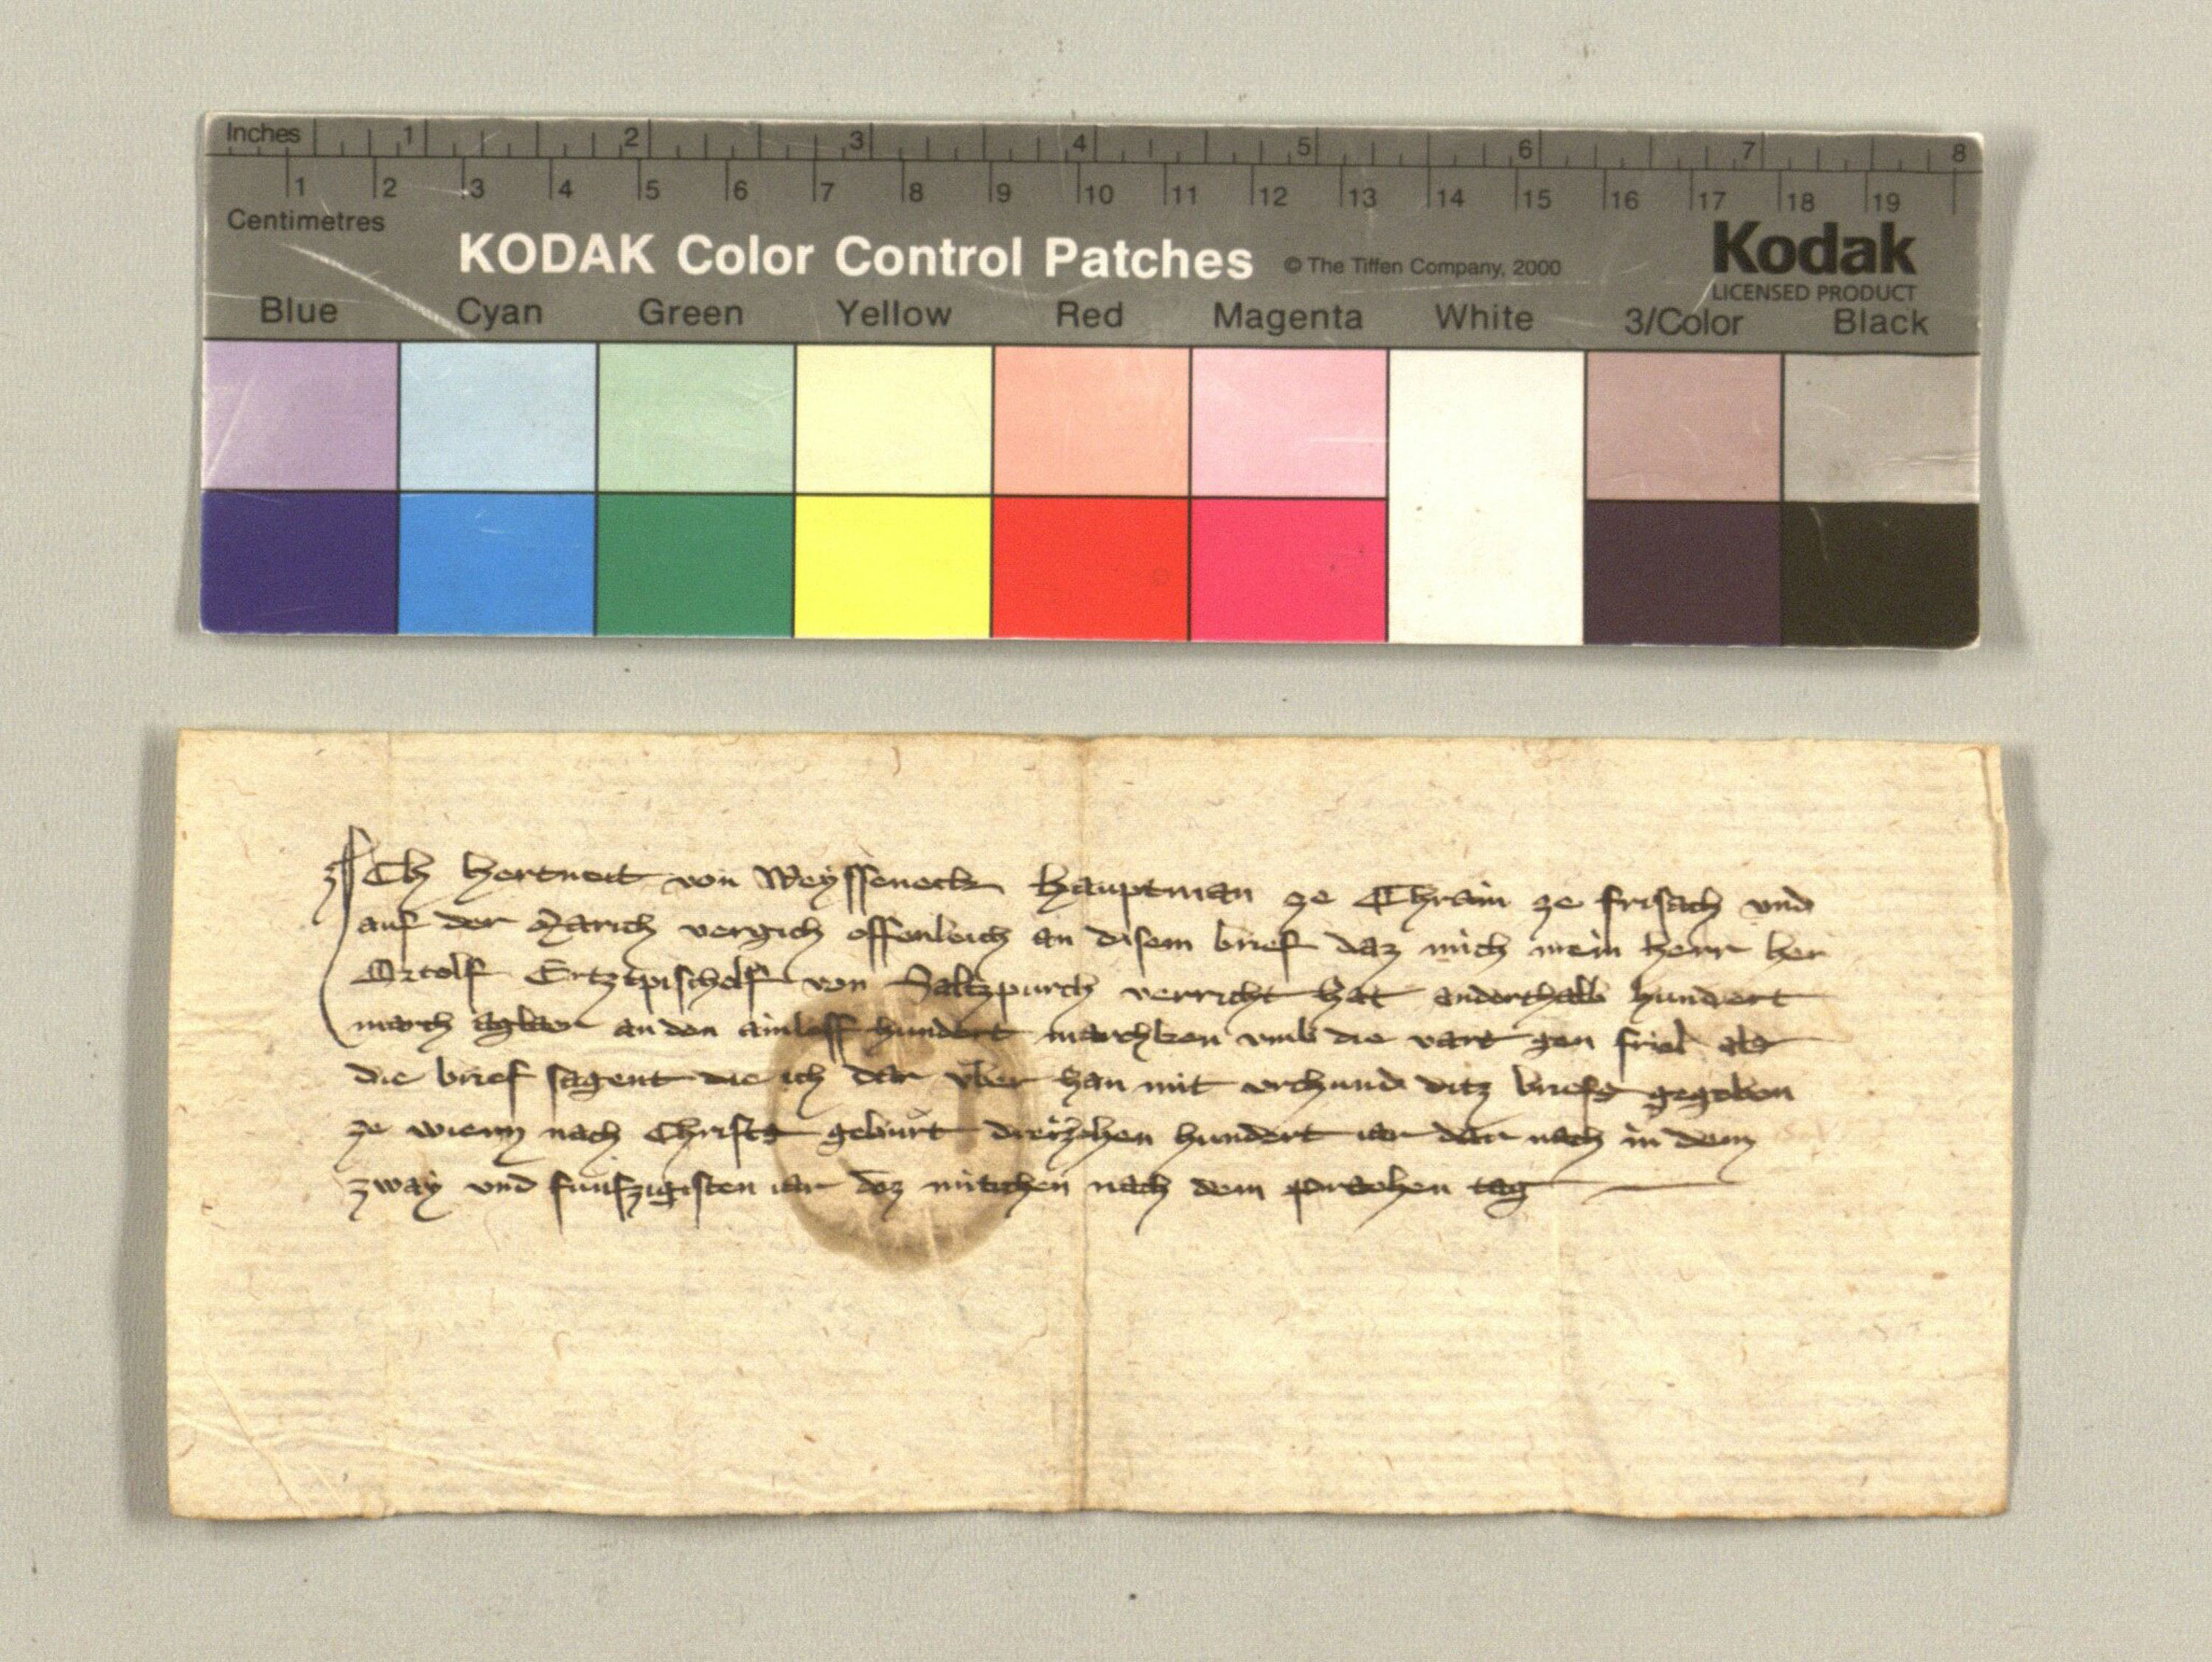 Inches 1 2 3 4 5 6 7 8
1 2 3 4 5 6 7 8 9 10 11 12 13 14 15 16 17 18 19
Centimetres
KODAK Color Control Patches © The Tiffen Company, 2000 Kodak
LICENSED PRODUCT
Blue Cyan Green Yellow Red Magenta White 3/Color Black
ICh hertneit von Weysseneck hauptman ze Chrain ze frisach vnd
auf der March vergich offenleich an disem brief daz mich mein herr her
Ortolf Ertztpischolf von Saltzpurch verricht hat anderthalb hundert
march aglaer an den ainleff hundert marchken vmb die vart gen friol als
die brief sagent die ich dar vber han mit vrchund ditz briefs gegeben
ze wienn nach Christs geburt dreitzehen hundert iar dar nach in dem
zway vnd funfzigisten iar dez mitichen nach dem prechen tag